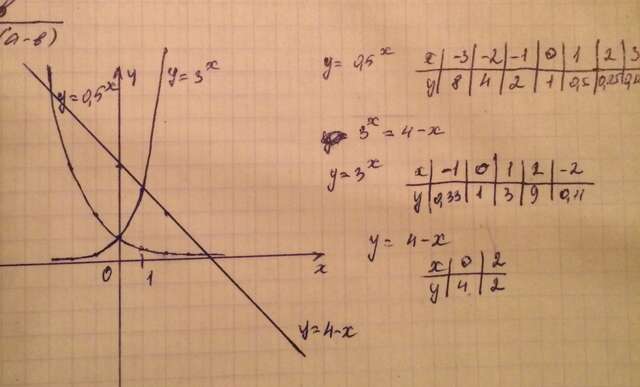 в
(а-в)
y
y=0,5^x
y=3^x
0
1
x
y=4-x
y=0,5^x
x | -3 | -2 | -1 | 0 | 1 | 2 | 3
y | 8 | 4 | 2 | 1 | 0,5 | 0,25
3^x = 4-x
y=3^x
x | -1 | 0 | 1 | 2 | -2
y | 0,33 | 1 | 3 | 9 | 0,11
y = 4-x
x | 0 | 2
y | 4 | 2